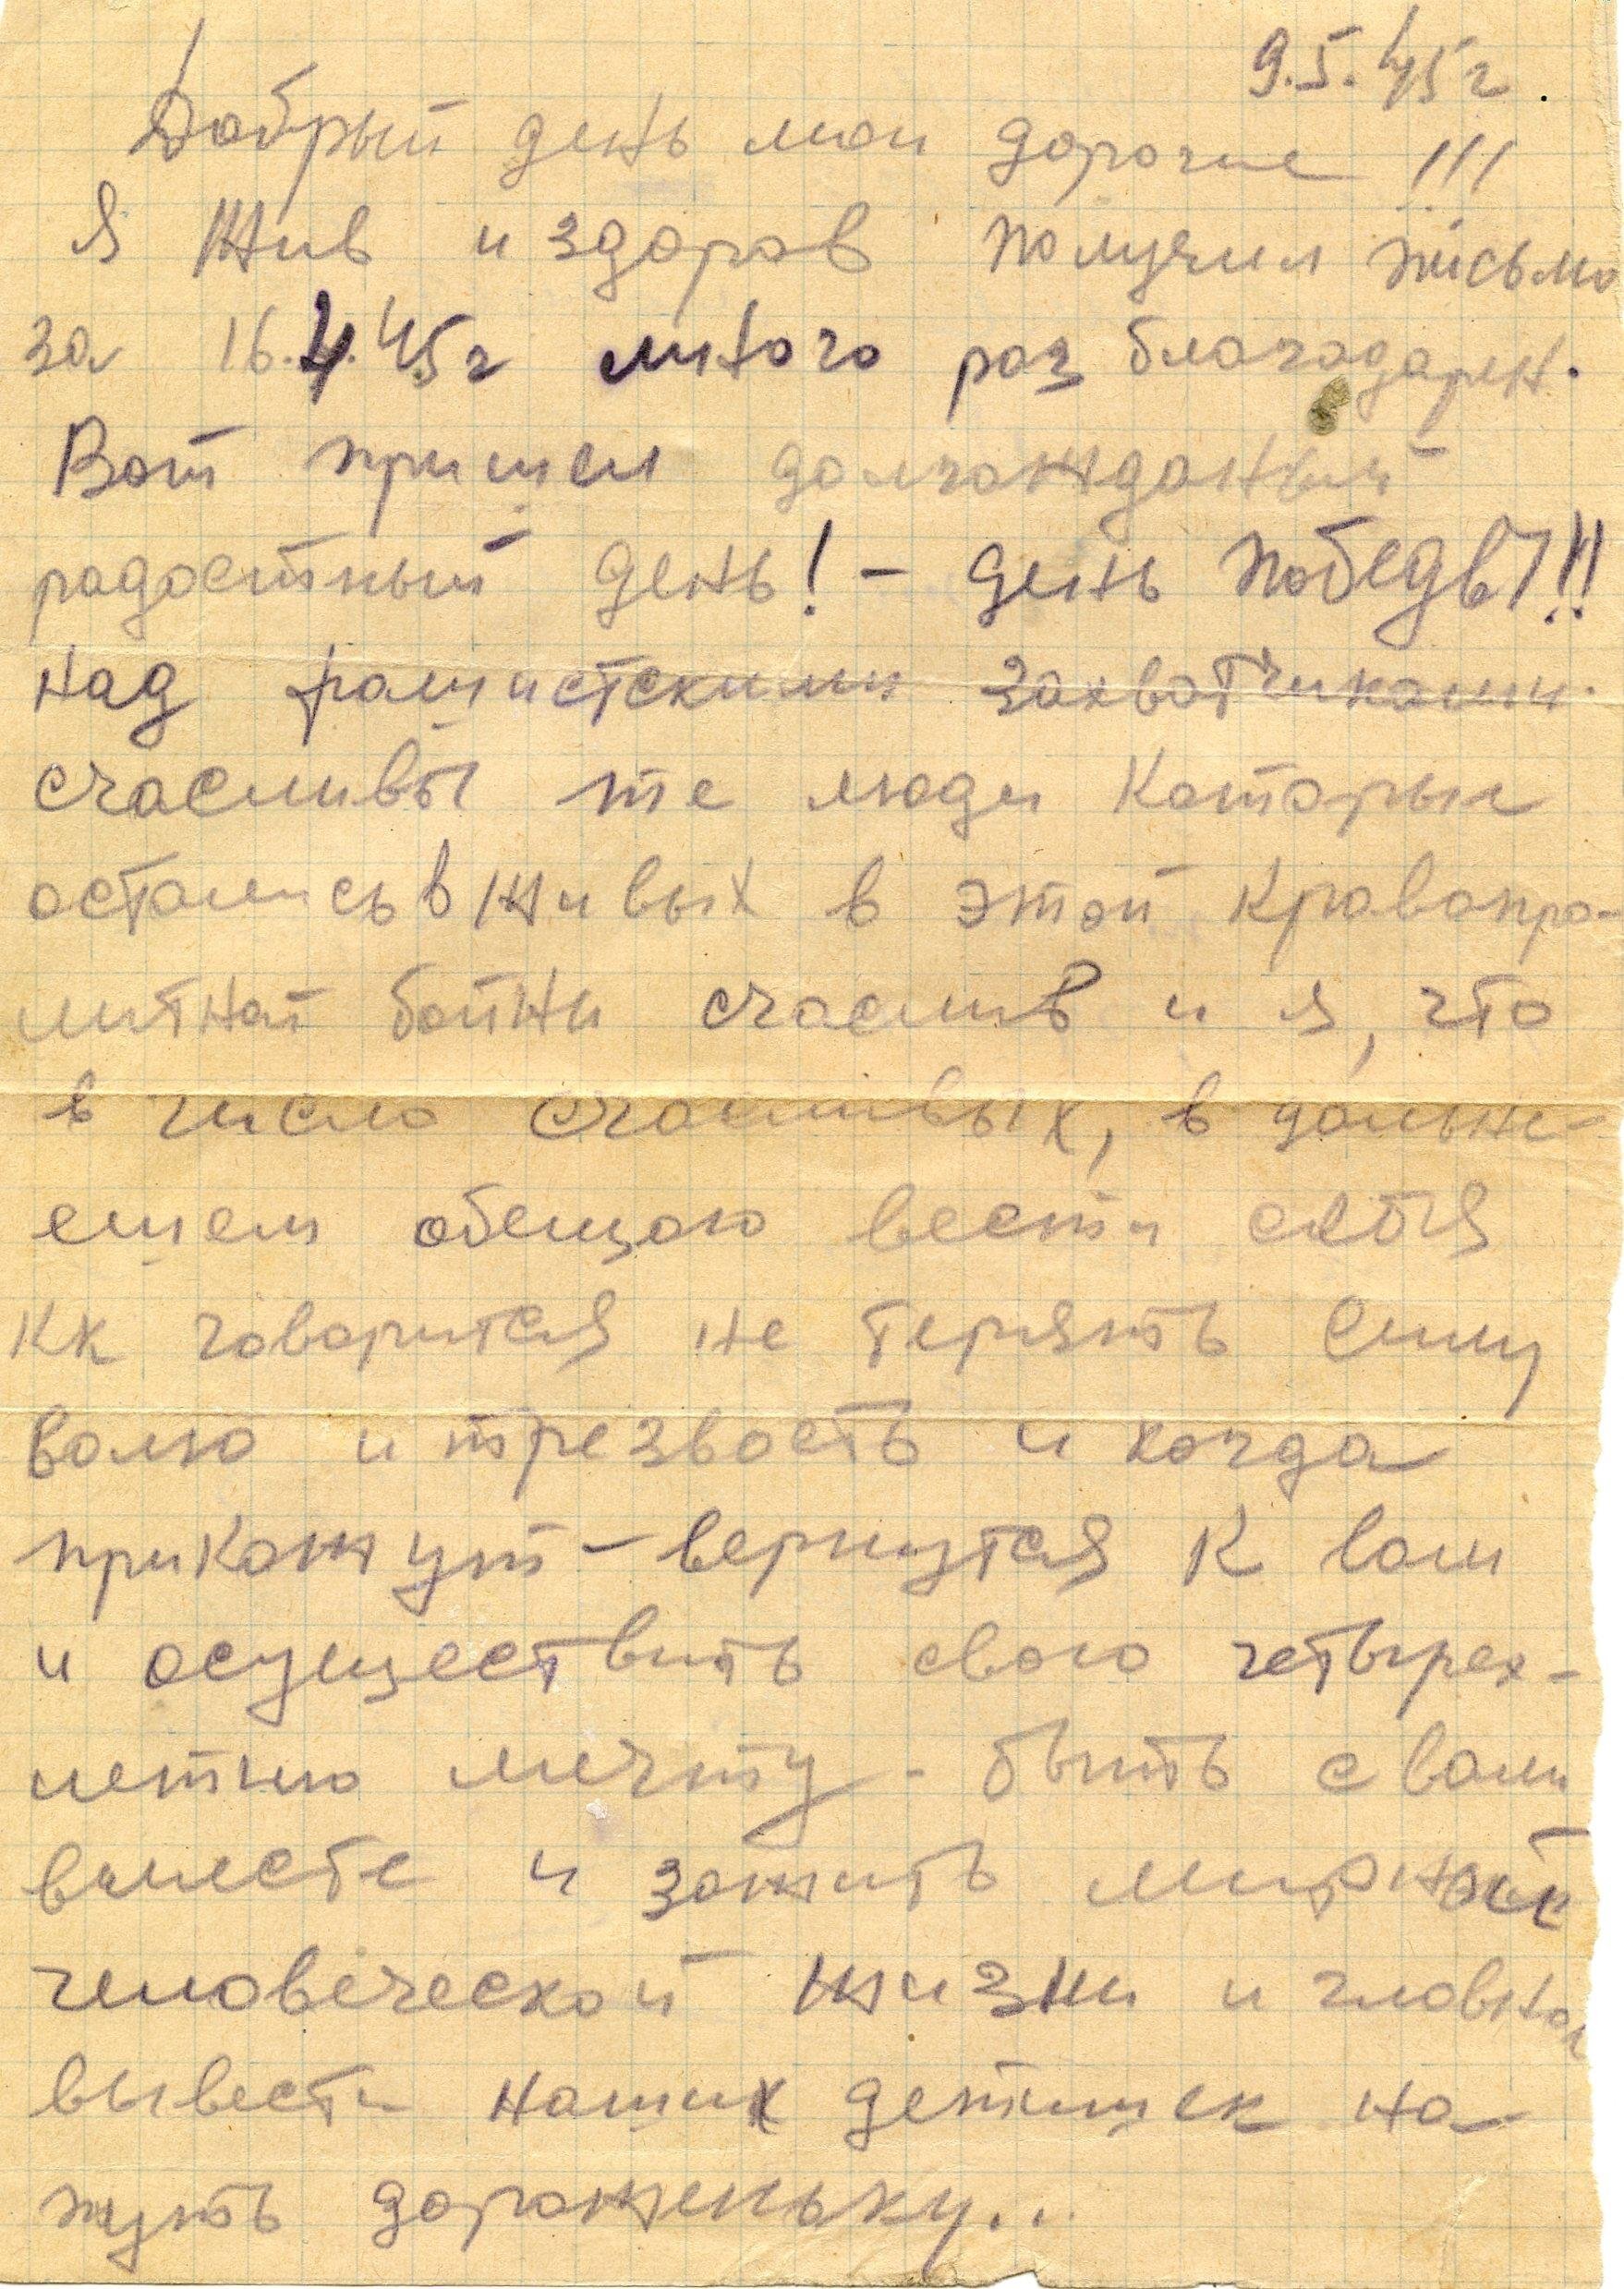 9.5.45г.
Добрый день мои дорогие !!!
Я жив и здоров получил письмо
за 16.4.45г много раз благодарен.
Вот пришел долгожданый
радостный день! - день победы!!!
над фашистскими захватчиками.
счасливы те люди которые
остались в живых в этой кровопро-
литной бойни счаслив и я, что
в число счасливых, в дальне-
ешем обещаю вести себя
кк говорится не терять силу
волю и трезвость и когда
прикажут - вернутся к вам
и осуществить свою четырех-
летнюю мечту - быть с вами
вместе и зажить мирной
человеческой жизни и главное
вывести наших детишек на
путь дороженьку...